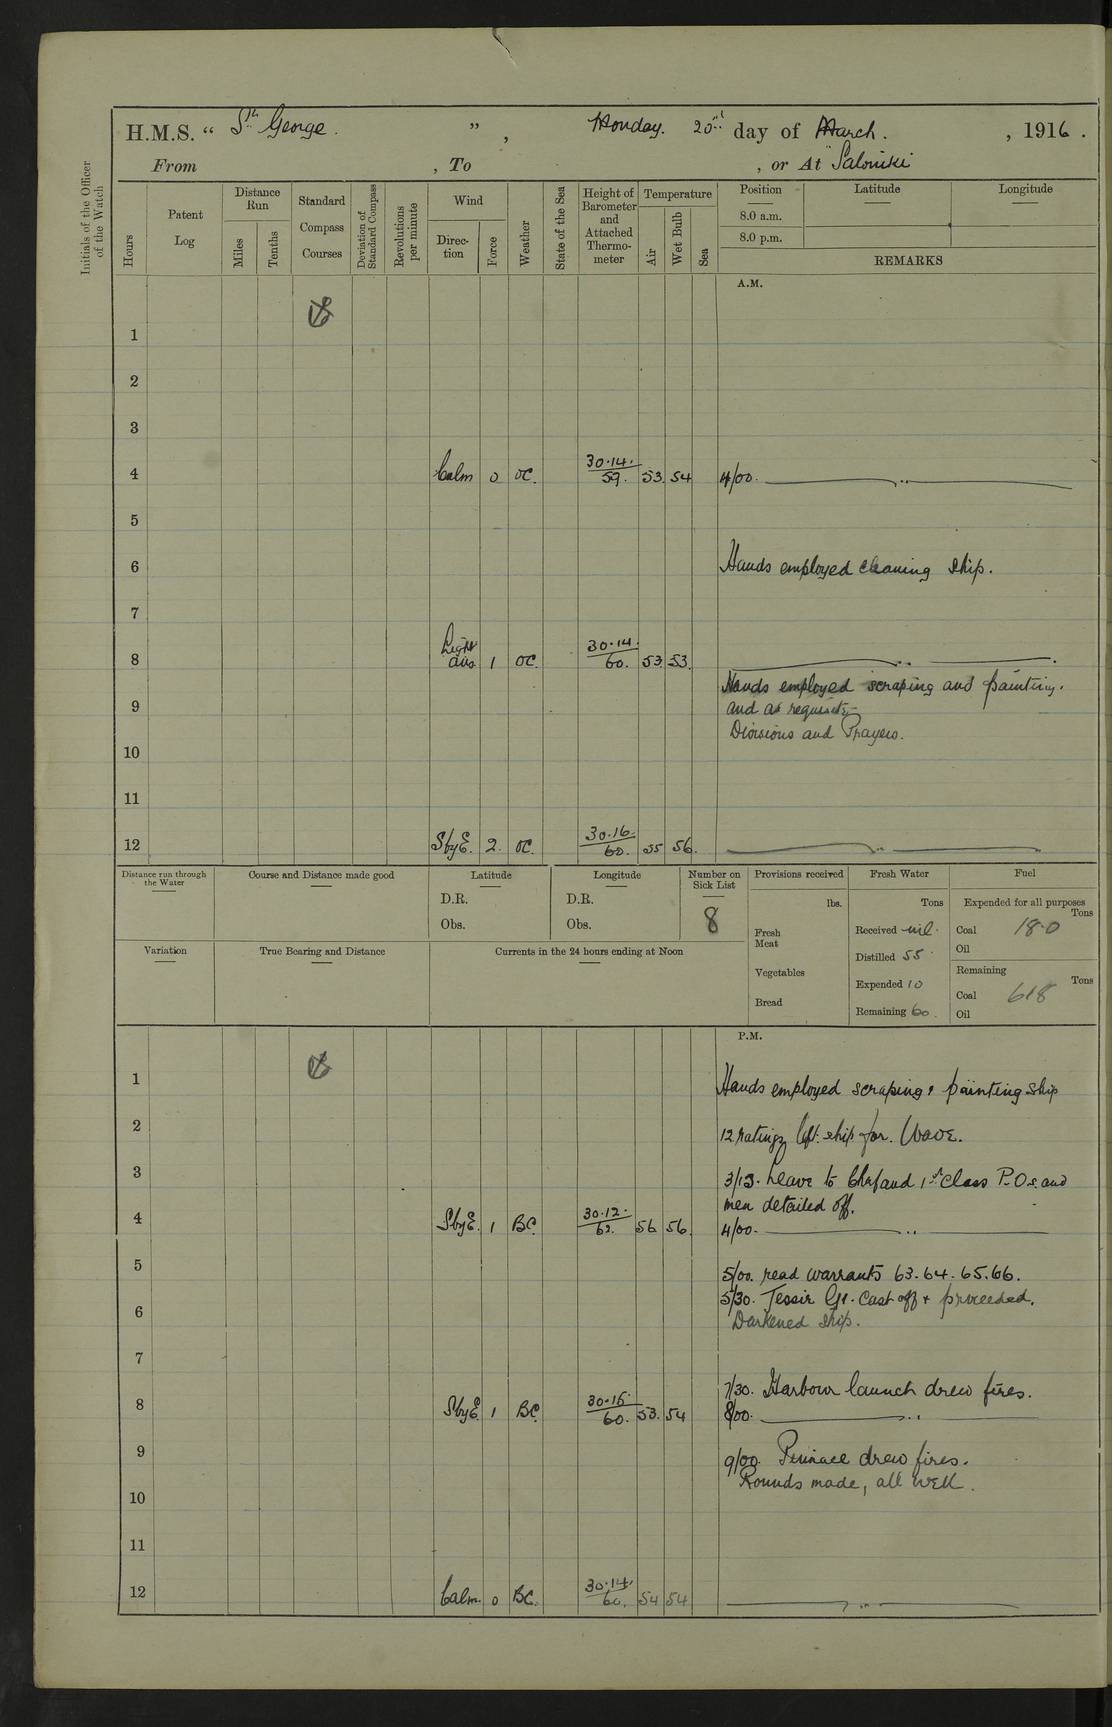 H.M.S. “ St. George. ” , Monday. 20th day of March. , 1916.
From , To , or At Saloniki
Initials of the Officer of the Watch
Hours
Patent Log
Distance Run
Miles
Tenths
Standard Compass Courses
Deviation of Standard Compass
Revolutions per minute
Wind
Direction
Force
Weather
State of the Sea
Height of Barometer and Attached Thermometer
Temperature
Air
Wet Bulb
Sea
Position
8.0 a.m.
8.0 p.m.
Latitude
Longitude
REMARKS
A.M.
1
2
3
4 Calm 0 OC. 30.14. 59. 53. 54 4/00. ,,
5
6 Hands employed cleaning ship.
7
8 Light airs 1 OC. 30.14. 60. 53. 53. ,,
Hands employed scraping and painting.
9 and as requisite
Divisions and Prayers.
10
11
12 SbyE. 2. OC. 30.16. 60. 55 56. ,,
Distance run through the Water
Course and Distance made good
Latitude
D.R.
Obs.
Longitude
D.R.
Obs.
Number on Sick List
8
Provisions received
lbs.
Fresh Meat
Vegetables
Bread
Fresh Water
Tons
Received nil.
Distilled 55
Expended 10
Remaining 60.
Fuel
Expended for all purposes
Tons
Coal 18.0
Oil
Remaining
Tons
Coal 618
Oil
Variation
True Bearing and Distance
Currents in the 24 hours ending at Noon
P.M.
1 Hands employed scraping & painting ship
2 12 ratings left ship for. Wave.
3 3/15. Leave to Chief and 1st Class P.Os. and
men detailed off.
4 SbyE. 1 BC. 30.12. 62. 56 56. 4/00. ,,
5 5/00. read warrants 63. 64. 65. 66.
5/30. Jessir Gt. Cast off & proceeded.
6 Darkened ship.
7
7/30. Harbour launch drew fires.
8 SbyE. 1 BC. 30.15. 60. 53. 54 8/00. ,,
9 9/00. Pinnace drew fires.
Rounds made, all well.
10
11
12 Calm. 0 BC. 30.14. 60. 54 54 ,,